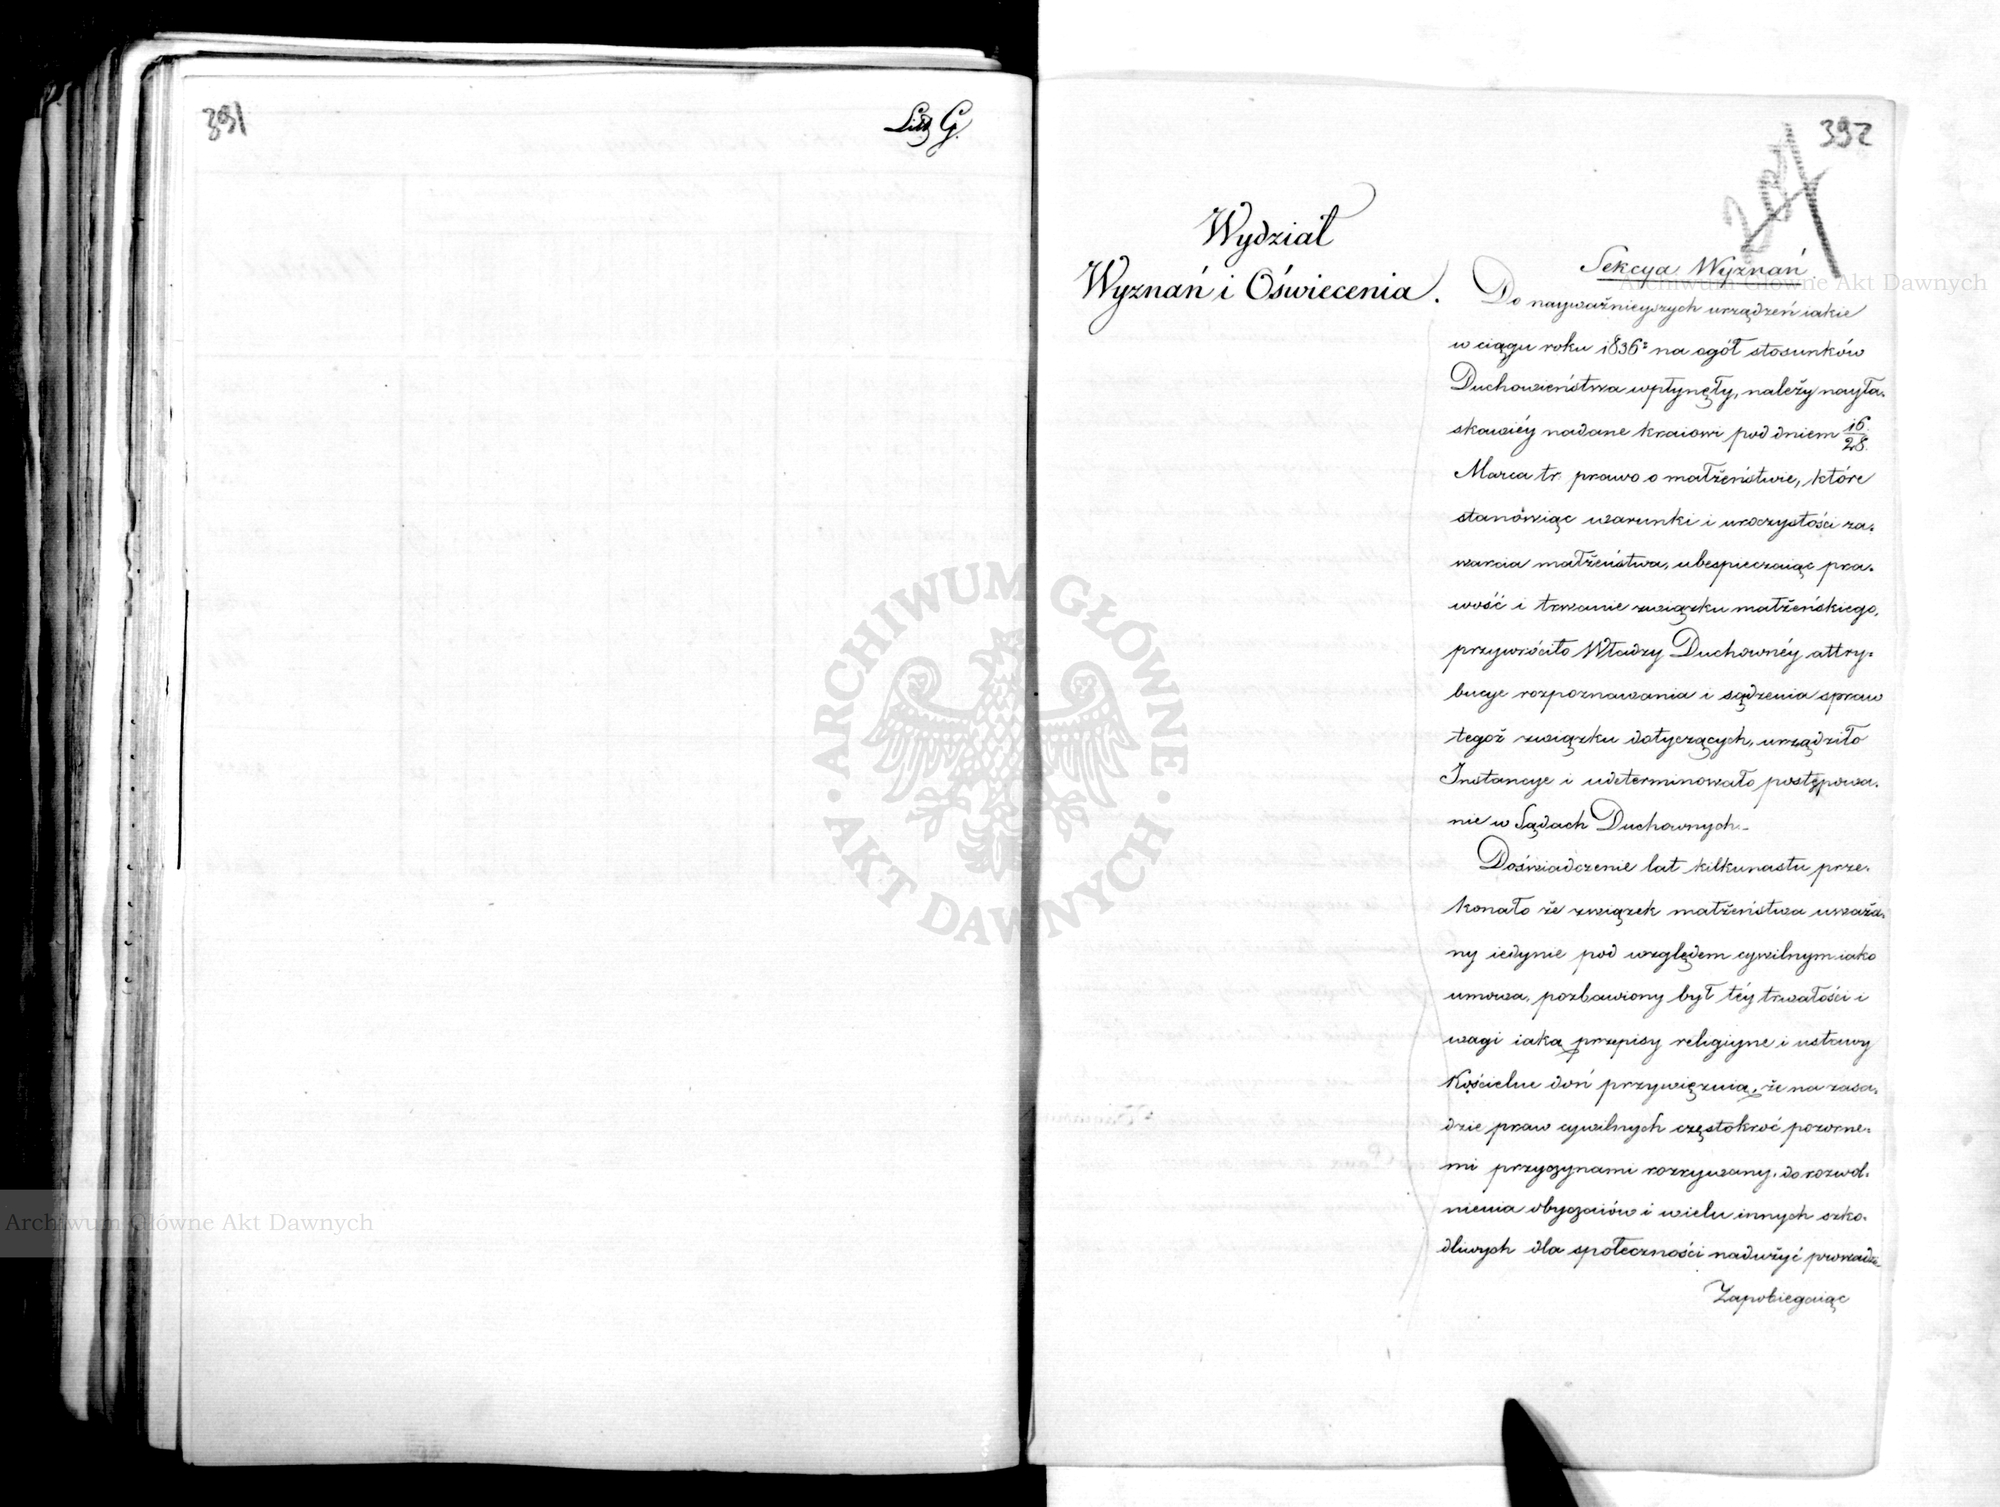 391
Litt G.
392
Wydział
Wyznań i Oświecenia.
Sekcya Wyznań
Do nayważnieyszych urządzeń iakie
w ciągu roku 1836: na ogół stosunków
Duchowieństwa wpłynęły, należy nayła-
skawiéy nadane kraiowi pod dniem 16/28.
Marca tr. prawo o małżeństwie, które
stanówiąc warunki i uroczystości za-
warcia małżeństwa, ubespieczaiąc pra-
wość i trwanie związku małżeńskiego,
przywróciło Władzy Duchownéy attry-
bucye rozpoznawania i sądzenia spraw
tegoż związku dotyczących, urządziło
Instancye i udeterminowało postępowa-
nie w Sądach Duchownych.-
Doświadczenie lat kilkunastu prze-
konało że związek małżeństwa uważa-
ny iedynie pod względem cywilnym iako
umowa, pozbawiony był téy trwałości i
wagi iaką przepisy religiyne i ustawy
Kościelne doń przywięzuią, że na zasa-
dzie praw cywilnych częstokroć pozorne-
mi przyczynami rozrywany, do rozwol-
nienia obyczaiów i wielu innych szko-
dliwych dla społeczności nadużyć prowadz-
Zapobiegaiąc
Archiwum Główne Akt Dawnych
Archiwum Główne Akt Dawnych
ARCHIWUM GŁÓWNE · AKT DAWNYCH ·